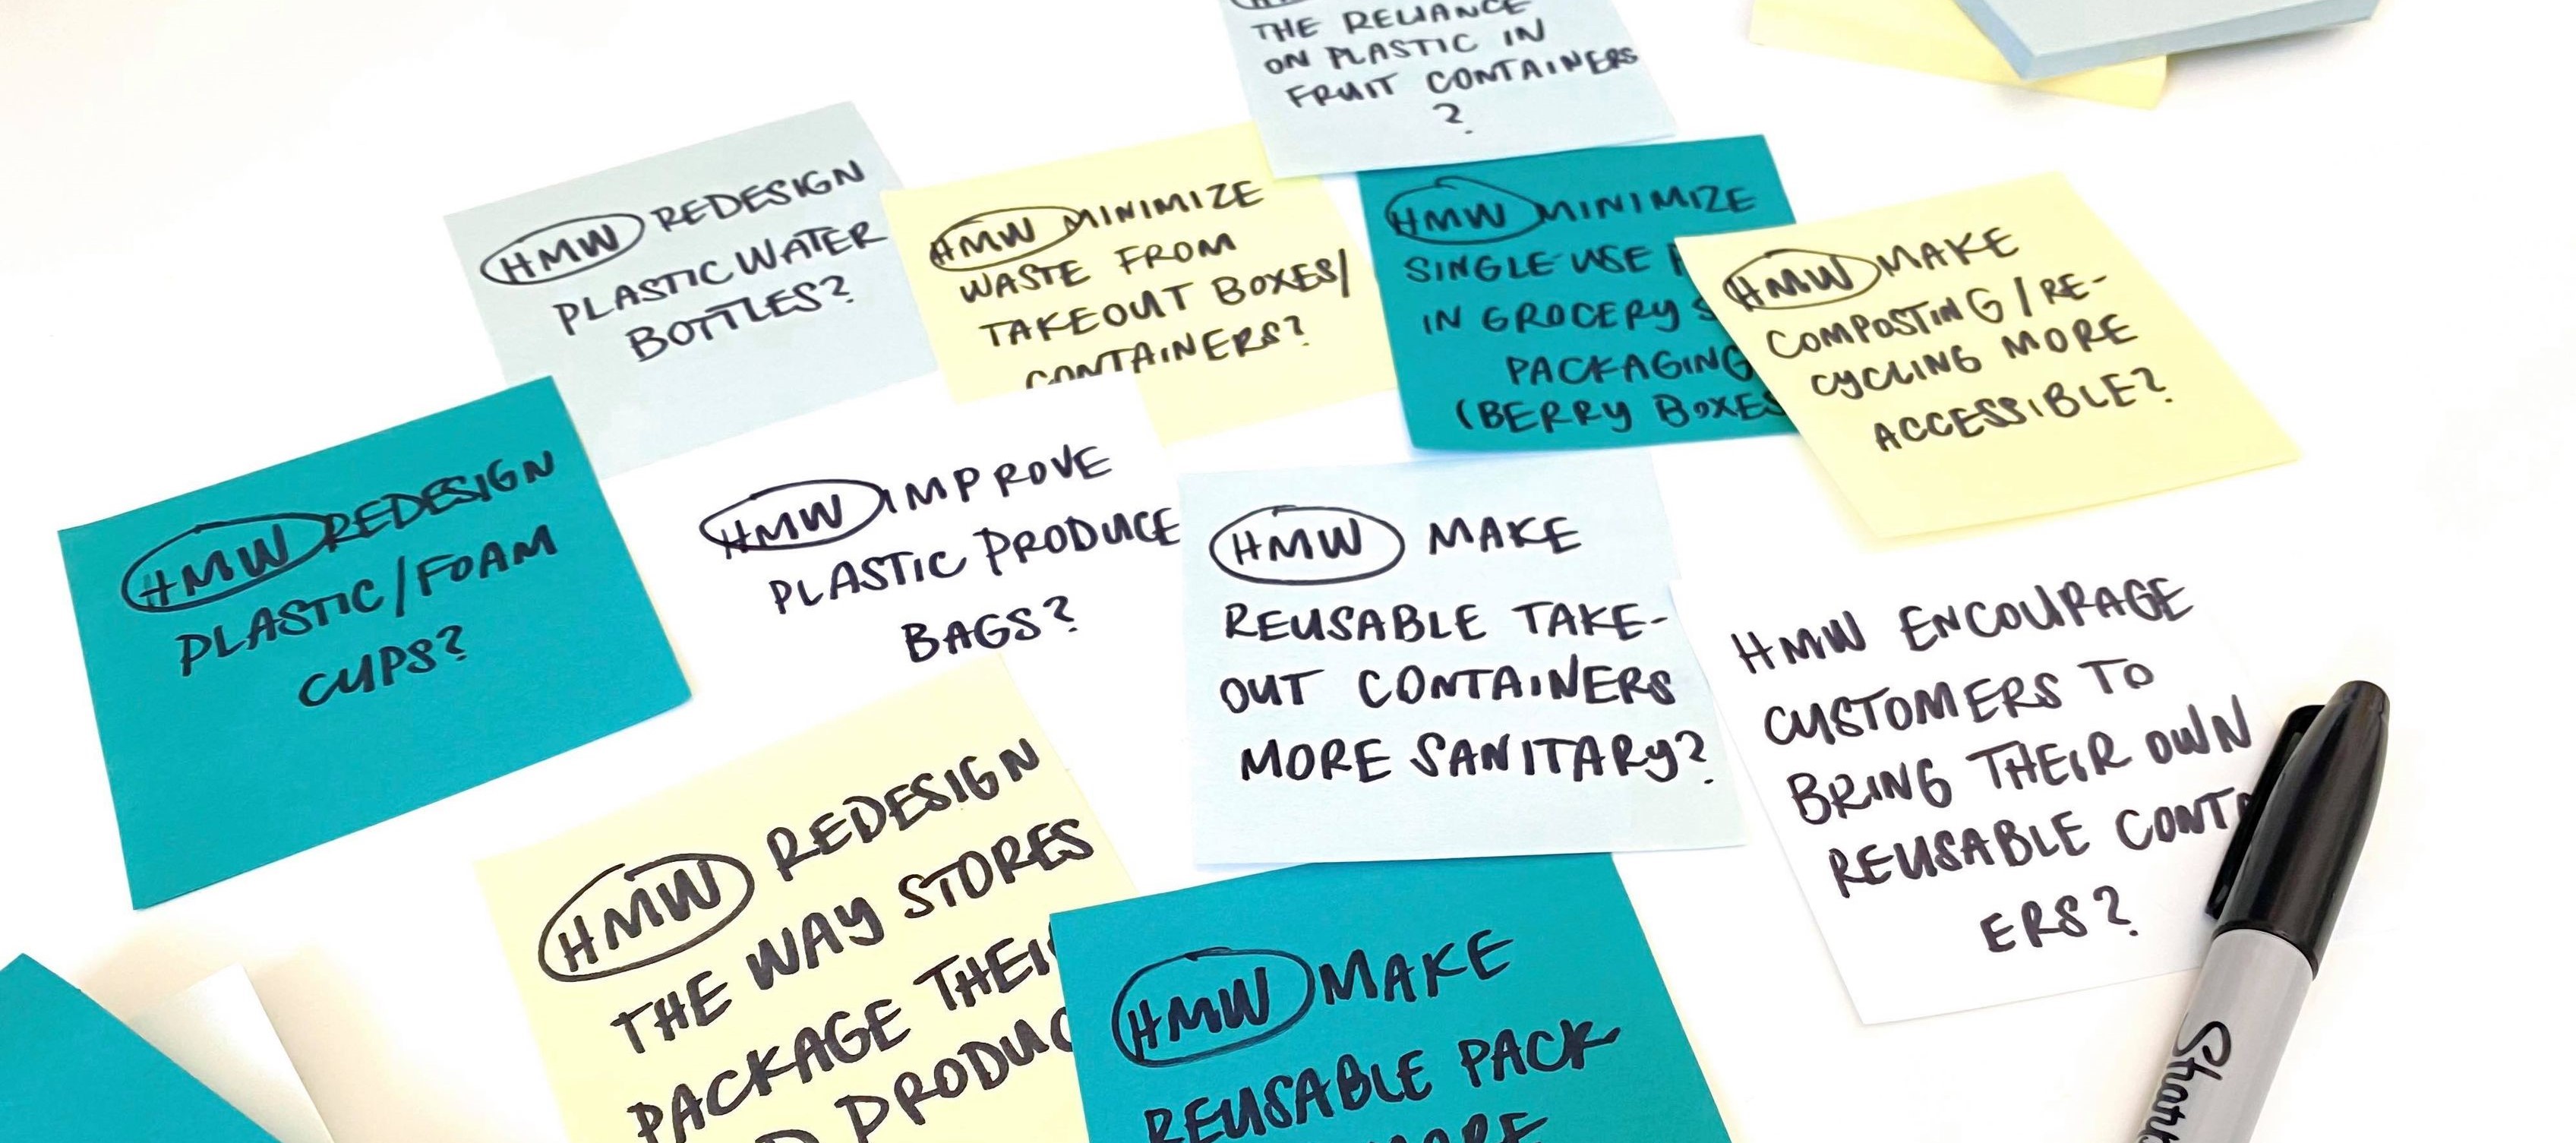 THE RELIANCE
ON PLASTIC IN
FRUIT CONTAINERS
?
HMW REDESIGN
PLASTIC WATER
BOTTLES?
HMW MINIMIZE
WASTE FROM
TAKEOUT BOXES/
CONTAINERS?
HMW MINIMIZE
SINGLE-USE
IN GROCERY
PACKAGING
(BERRY BOXES
HMW MAKE
COMPOSTING/RE-
CYCLING MORE
ACCESSIBLE?
HMW REDESIGN
PLASTIC/FOAM
CUPS?
HMW IMPROVE
PLASTIC PRODUCE
BAGS?
HMW MAKE
REUSABLE TAKE-
OUT CONTAINERS
MORE SANITARY?
HMW ENCOURAGE
CUSTOMERS TO
BRING THEIR OWN
REUSABLE CONTA
ERS?
HMW REDESIGN
THE WAY STORES
PACKAGE THEI
PRODUC
HMW MAKE
REUSABLE PACK-
MORE
Sharp